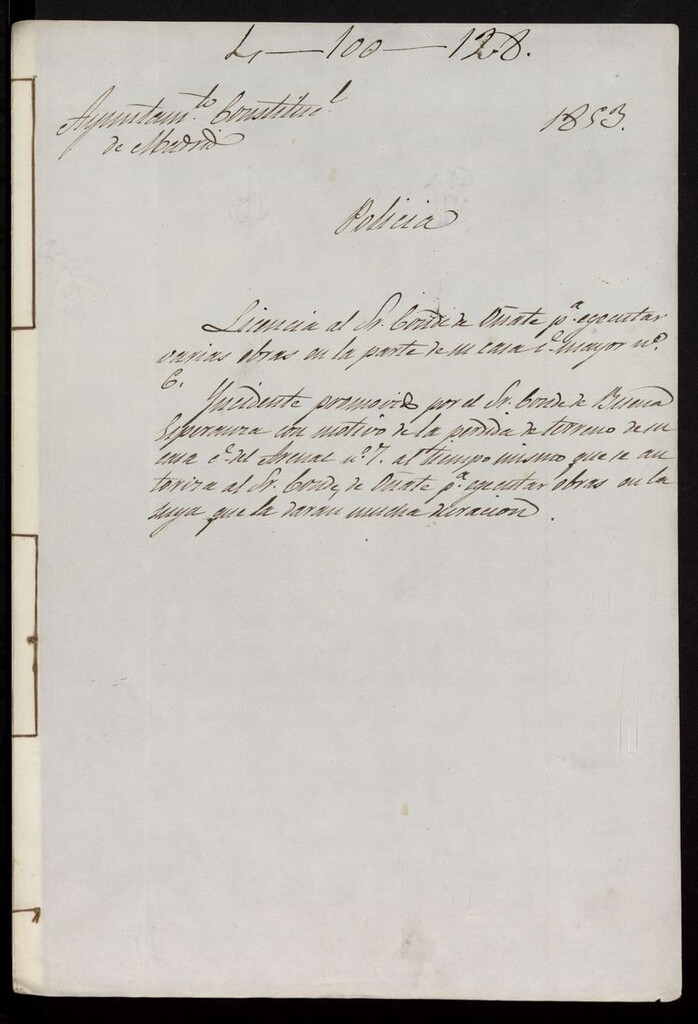 4 — 100 — 128.
Ayuntam.to Constituc.l
de Madrid
1853.
Policia
Licencia al Sr. Conde de Oñate p.a ejecutar
varias obras en la parte de su casa c.e mayor n.o
6.
Yncidente promovido por el Sr. Conde de Buena
Esperanza con motivo de la perdida de terreno de su
casa c.e del Arenal n.o 7. al tiempo mismo que se au
toriza al Sr. Conde, de Oñate p.a ejecutar obras en la
suya que la daran mucha duracion.